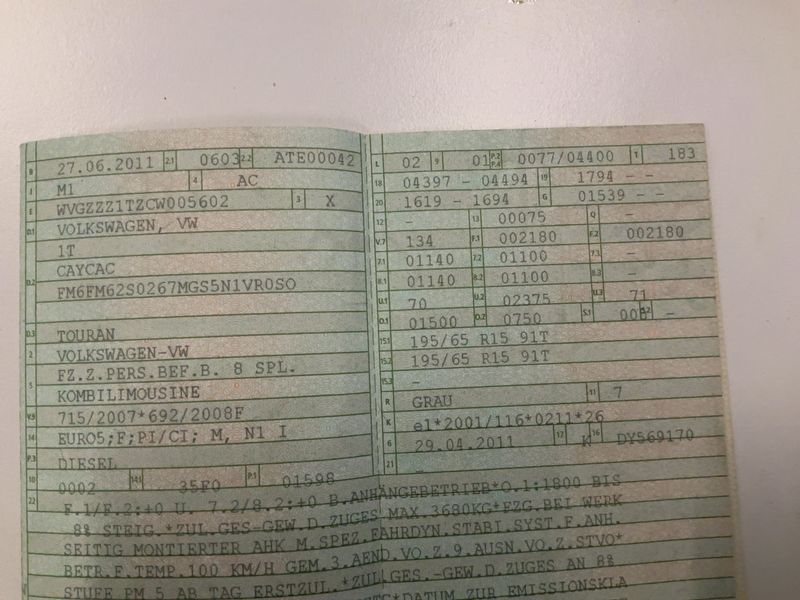 B 27.06.2011 2.1 0603 2.2 ATE00042
J M1 4 AC
E WVGZZZ1TZCW005602 3 X
D.1 VOLKSWAGEN, VW
1T
D.2 CAYCAC
FM6FM62S0267MGS5N1VR0SO
D.3 TOURAN
2 VOLKSWAGEN-VW
5 FZ.Z.PERS.BEF.B. 8 SPL.
KOMBILIMOUSINE
V.9 715/2007*692/2008F
14 EURO5;F;PI/CI; M, N1 I
P.3 DIESEL
10 0002 14.1 35F0 P.1 01598
L 02 9 01 P.2 P.4 0077/04400 T 183
18 04397 - 04494 19 1794 - -
20 1619 - 1694 G 01539 - -
12 - 13 00075 Q -
V.7 134 F.1 002180 F.2 002180
7.1 01140 7.2 01100 7.3 -
8.1 01140 8.2 01100 8.3 -
U.1 70 U.2 02375 U.3 71
O.1 01500 O.2 0750 S.1 S.2 -
15.1 195/65 R15 91T
15.2 195/65 R15 91T
15.3 -
R GRAU 11 7
K e1*2001/116*0211*26
6 29.04.2011 17 K 16 DY569170
21 -
22 F.1/F.2:+0 U. 7.2/8.2:+0 B.ANHÄNGEBETRIEB*O.1:1800 BIS
8% STEIG.*ZUL.GES-GEW.D.ZUGES MAX.3680KG*FZG.BEI WERK
SEITIG MONTIERTER AHK M.SPEZ.FAHRDYN.STABI.SYST.F.ANH.
BETR.F.TEMP.100 KM/H GEM.3.AEND.VO.Z.9.AUSN.VO.Z.STVO*
STUFE PM 5 AB TAG ERSTZUL.*ZUL.GES.-GEW.D.ZUGES AN 8%
*DATUM ZUR EMISSIONSKLA